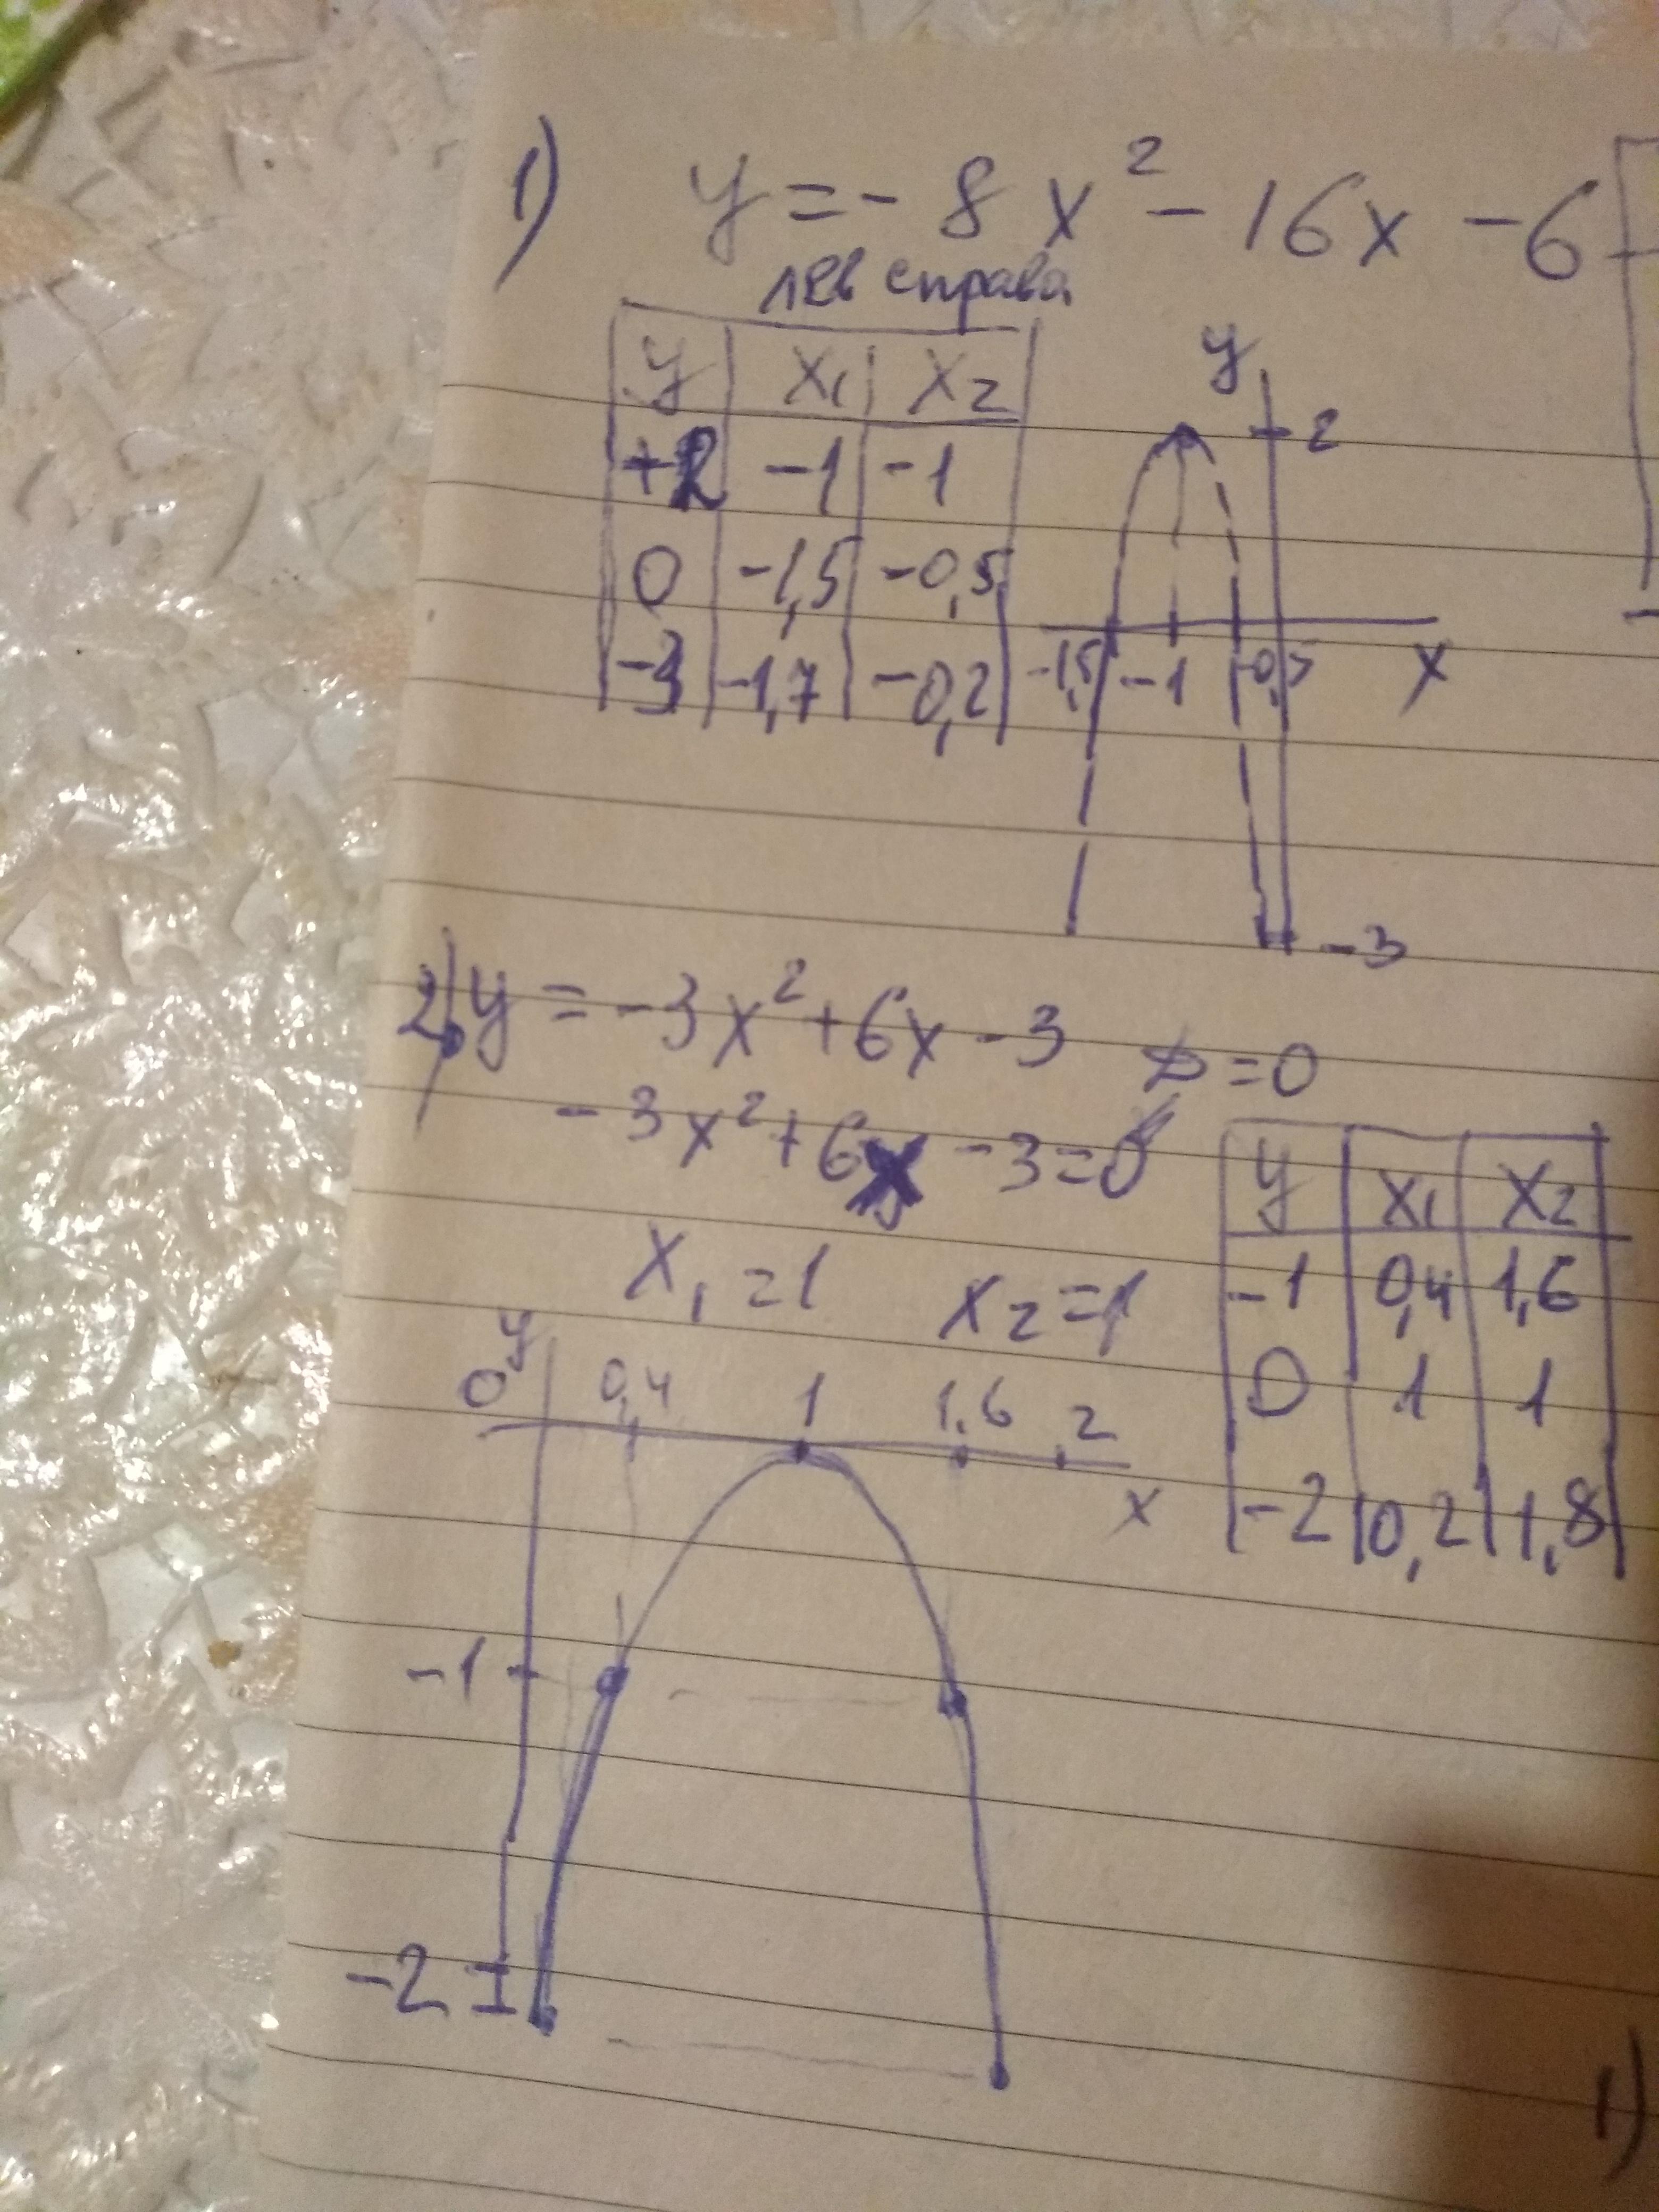 1) y = - 8 x² - 16x - 6
лев справа
y x₁ x₂
+2 -1 -1
0 -1,5 -0,5
-3 -1,7 -0,2
y
2
-1,5 -1 -0,5 x
-3
2) y = -3x² + 6x - 3 D = 0
-3x² + 6x - 3 = 0
x₁ = 1 x₂ = 1
y x₁ x₂
-1 0,4 1,6
0 1 1
-2 0,2 1,8
y
0 0,4 1 1,6 2
x
-1
-2
1)